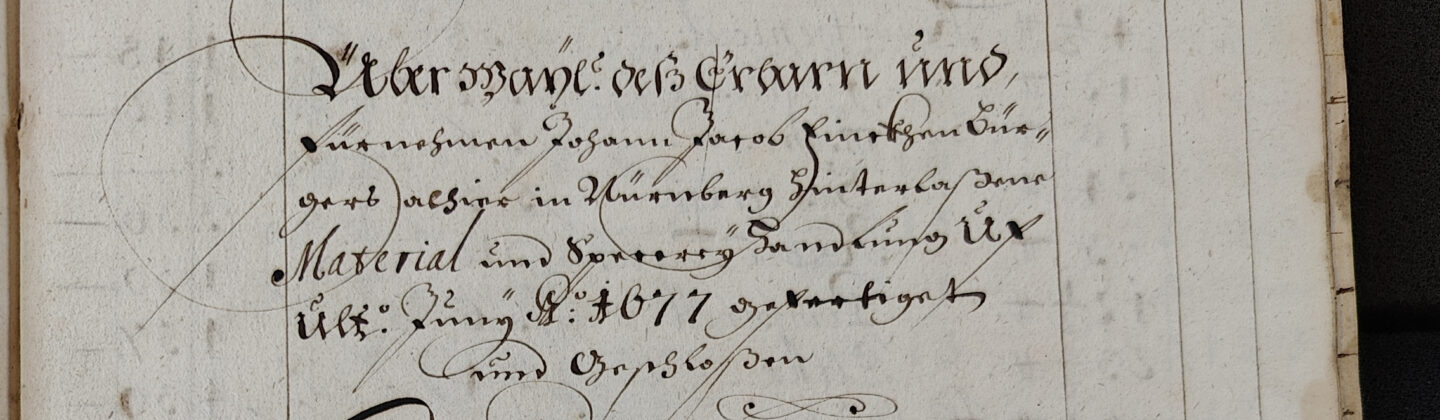 Über Wayl: deß Erbarn und
fürnehmen Johann Jacob Finckhen Bür-
gers alhier in Nürnberg hinterlaßene
Material und Specerey Handlung Uf
Ult.o Juny A.o 1677 gefertiget
und Geschloßen